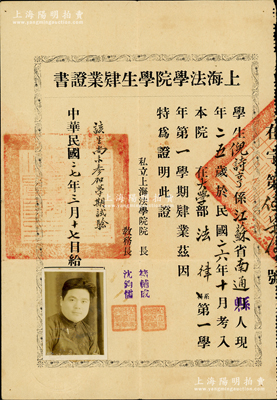 上海陽明拍賣
上海法學院學生肄業證書
學生倪詩亨係江蘇省南通縣人現
年二五歲於民國二六年十月考入
本院在大學部法律系第一學
年第一學期肄業茲因
該生尚未參加學期試驗
特為證明此證
私立上海法學院院長 褚輔成
教務長 沈鈞儒
中華民國二七年三月十七日給